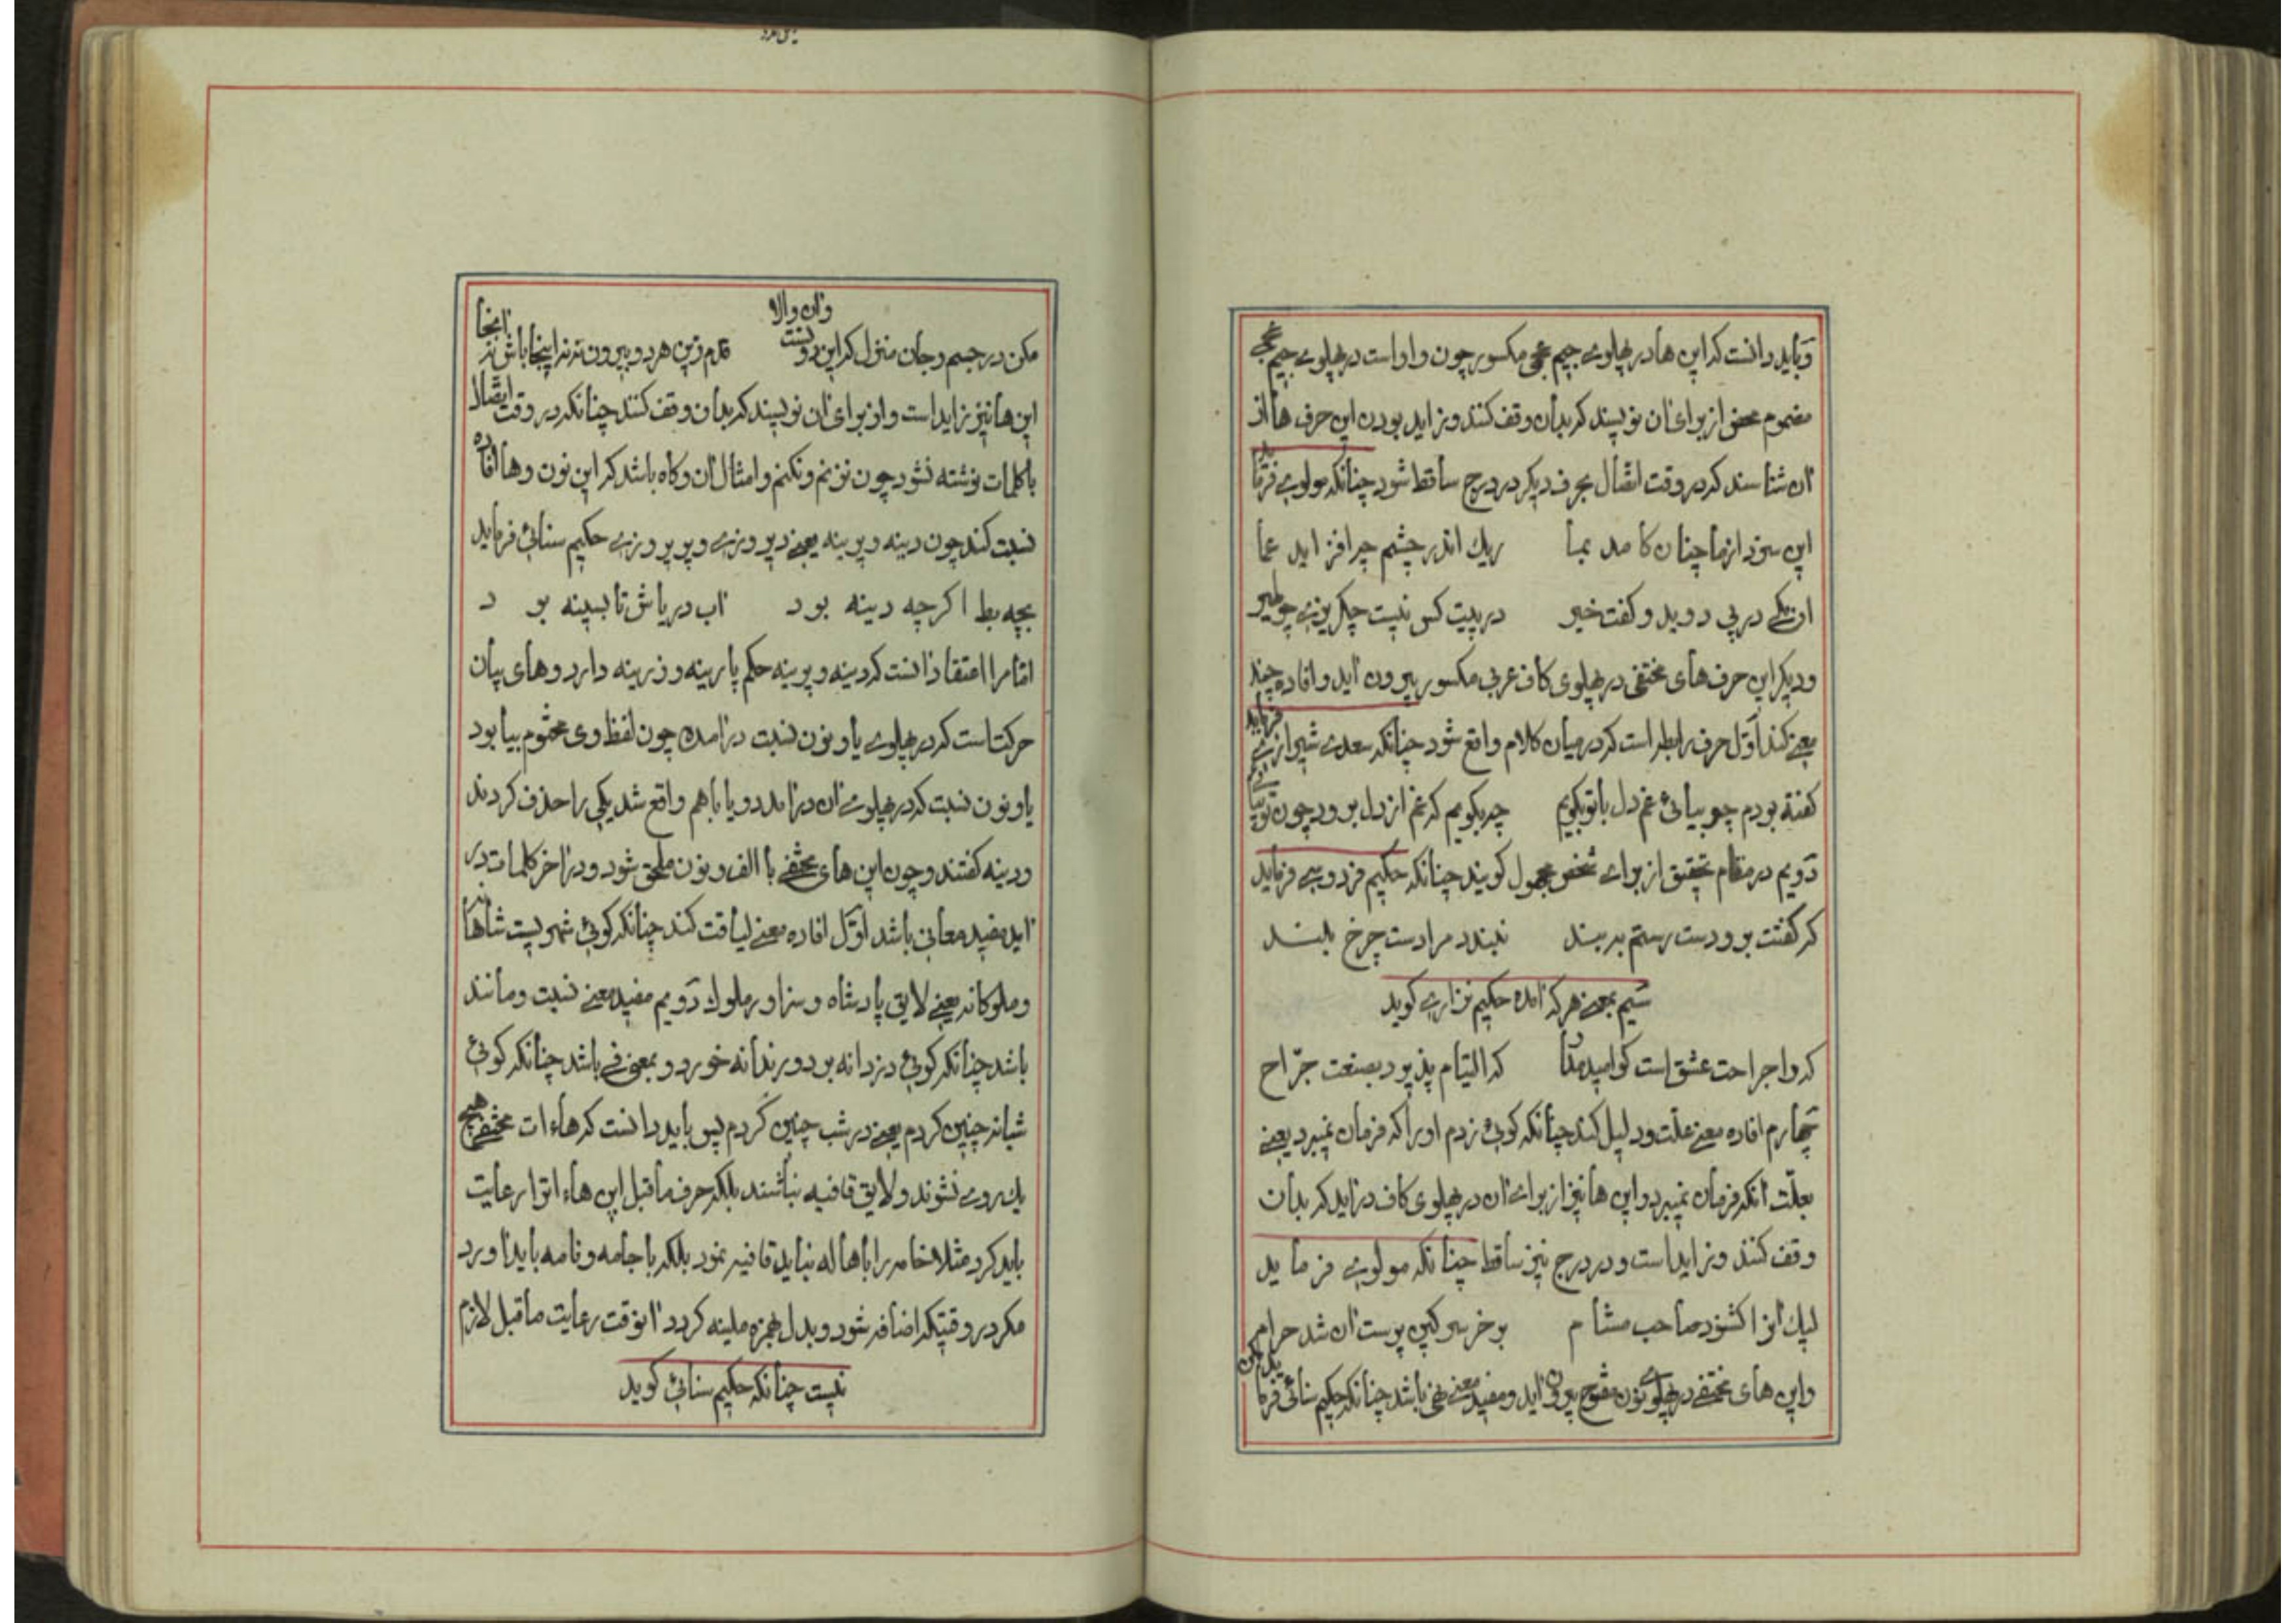 و باید دانست که این ها در پهلوی جیم عجمی مکسور چون واو است در پهلوی جیم عجمی
مضموم محض از برای آن نویسند که بدان وقف کنند و زاید بودن این حرف ها از
آن شناسند که در وقت اتصال بحرف دیگر در درج ساقط شود چنانکه مولوی فرماید
این سزد از ما چنان کامد بما ریک اندر چشم چرا فزاید عما
آن یکی در پی دوید و کفت خیر در پیت کس نیست چکریزی چو طیر
و دیکر این حرف های مختفی در پهلوی کاف عربی مکسور بیرون آید و افاده چند
معنی کند اول حرف رابطه است که در میان کلام واقع شود چنانکه سعدی شیرازی فرماید
کفته بودم چو بیائی غم دل با تو بکویم چه بکویم که غم از دل برود چون تو بیائی
دویم در مقام تحقیق از برای شخص مجهول کویند چنانکه حکیم فردوسی فرماید
که کفتت برو دست رستم ببند نبندد مرا دست چرخ بلند
سیم بمعنی هرکه آمده حکیم نزاری کوید
که را جراحت عشق است کو امید مدار که التیام پذیرد بصنعت جراح
چهارم افاده معنی علت و دلیل کند چنانکه کوئی زدم او را که فرمان نمیبرد یعنی
بعلت آنکه فرمان نمیبرد و این ها نیز از برای آن در پهلوی کاف درآید که بدان
وقف کنند و زاید است و در درج نیز ساقط چنانکه مولوی فرماید
لیک آنرا کشنود صاحب مشام بو خر سرکین پرست آن شد حرام
و این های مختفی در پهلوی نون مفتوح بیرون آید و مفید معنی نهی باشد چنانکه حکیم سنائی فرماید
مکن در جسم و جان منزل که این دونست و آن والا قدم زین هر دو بیرون نه نه اینجا باش نه آنجا
این ها نیز زاید است و از برای آن نویسند که بدان وقف کنند چنانکه در وقت اتصال
با کلمات نوشته نشود چون نزنم و نکنم و امثال آن و کاه باشد که این نون و ها افاده
نسبت کند چون دینه و پرینه یعنی دیروزی و پریروزی حکیم سنائی فرماید
بچه بط اکرچه دینه بود آب دریاش تا بسینه بود
اما مرا اعتقاد آنست که دینه و پرینه حکم پارینه و زرینه دارد و های بیان
حرکتست که در پهلوی یا و نون نسبت درآمده چون لفظ وی مختوم بیا بود
یا و نون نسبت که در پهلوی آن درآمد دو یا با هم واقع شد یکی را حذف کردند
و دینه کفتند و چون این های مختفی با الف و نون ملحق شود و در آخر کلمات در
آید مفید معانی باشد اول افاده معنی لیاقت کند چنانکه کوئی شهریست شاهانه
و ملوکانه یعنی لایق پادشاه و سزاور ملوک دویم مفید معنی نسبت و مانند
باشد چنانکه کوئی دزدانه بود و رندانه خورد و بمعنی فی باشد چنانکه کوئی
شبانه چنین کردم یعنی در شب چنین کردم پس باید دانست که هاءات مختفی هیچ
یک روی نشوند و لایق قافیه نباشند بلکه حرف ماقبل این هاء اترا رعایت
باید کرد مثلا خامه را با هاله نباید قافیه نمود بلکه با جامه و نامه باید آورد
مکر در وقتیکه اضافه شود و بدل بهمزه ملینه کردد آنوقت رعایت ماقبل لازم
نیست چنانکه حکیم سنائی کوید